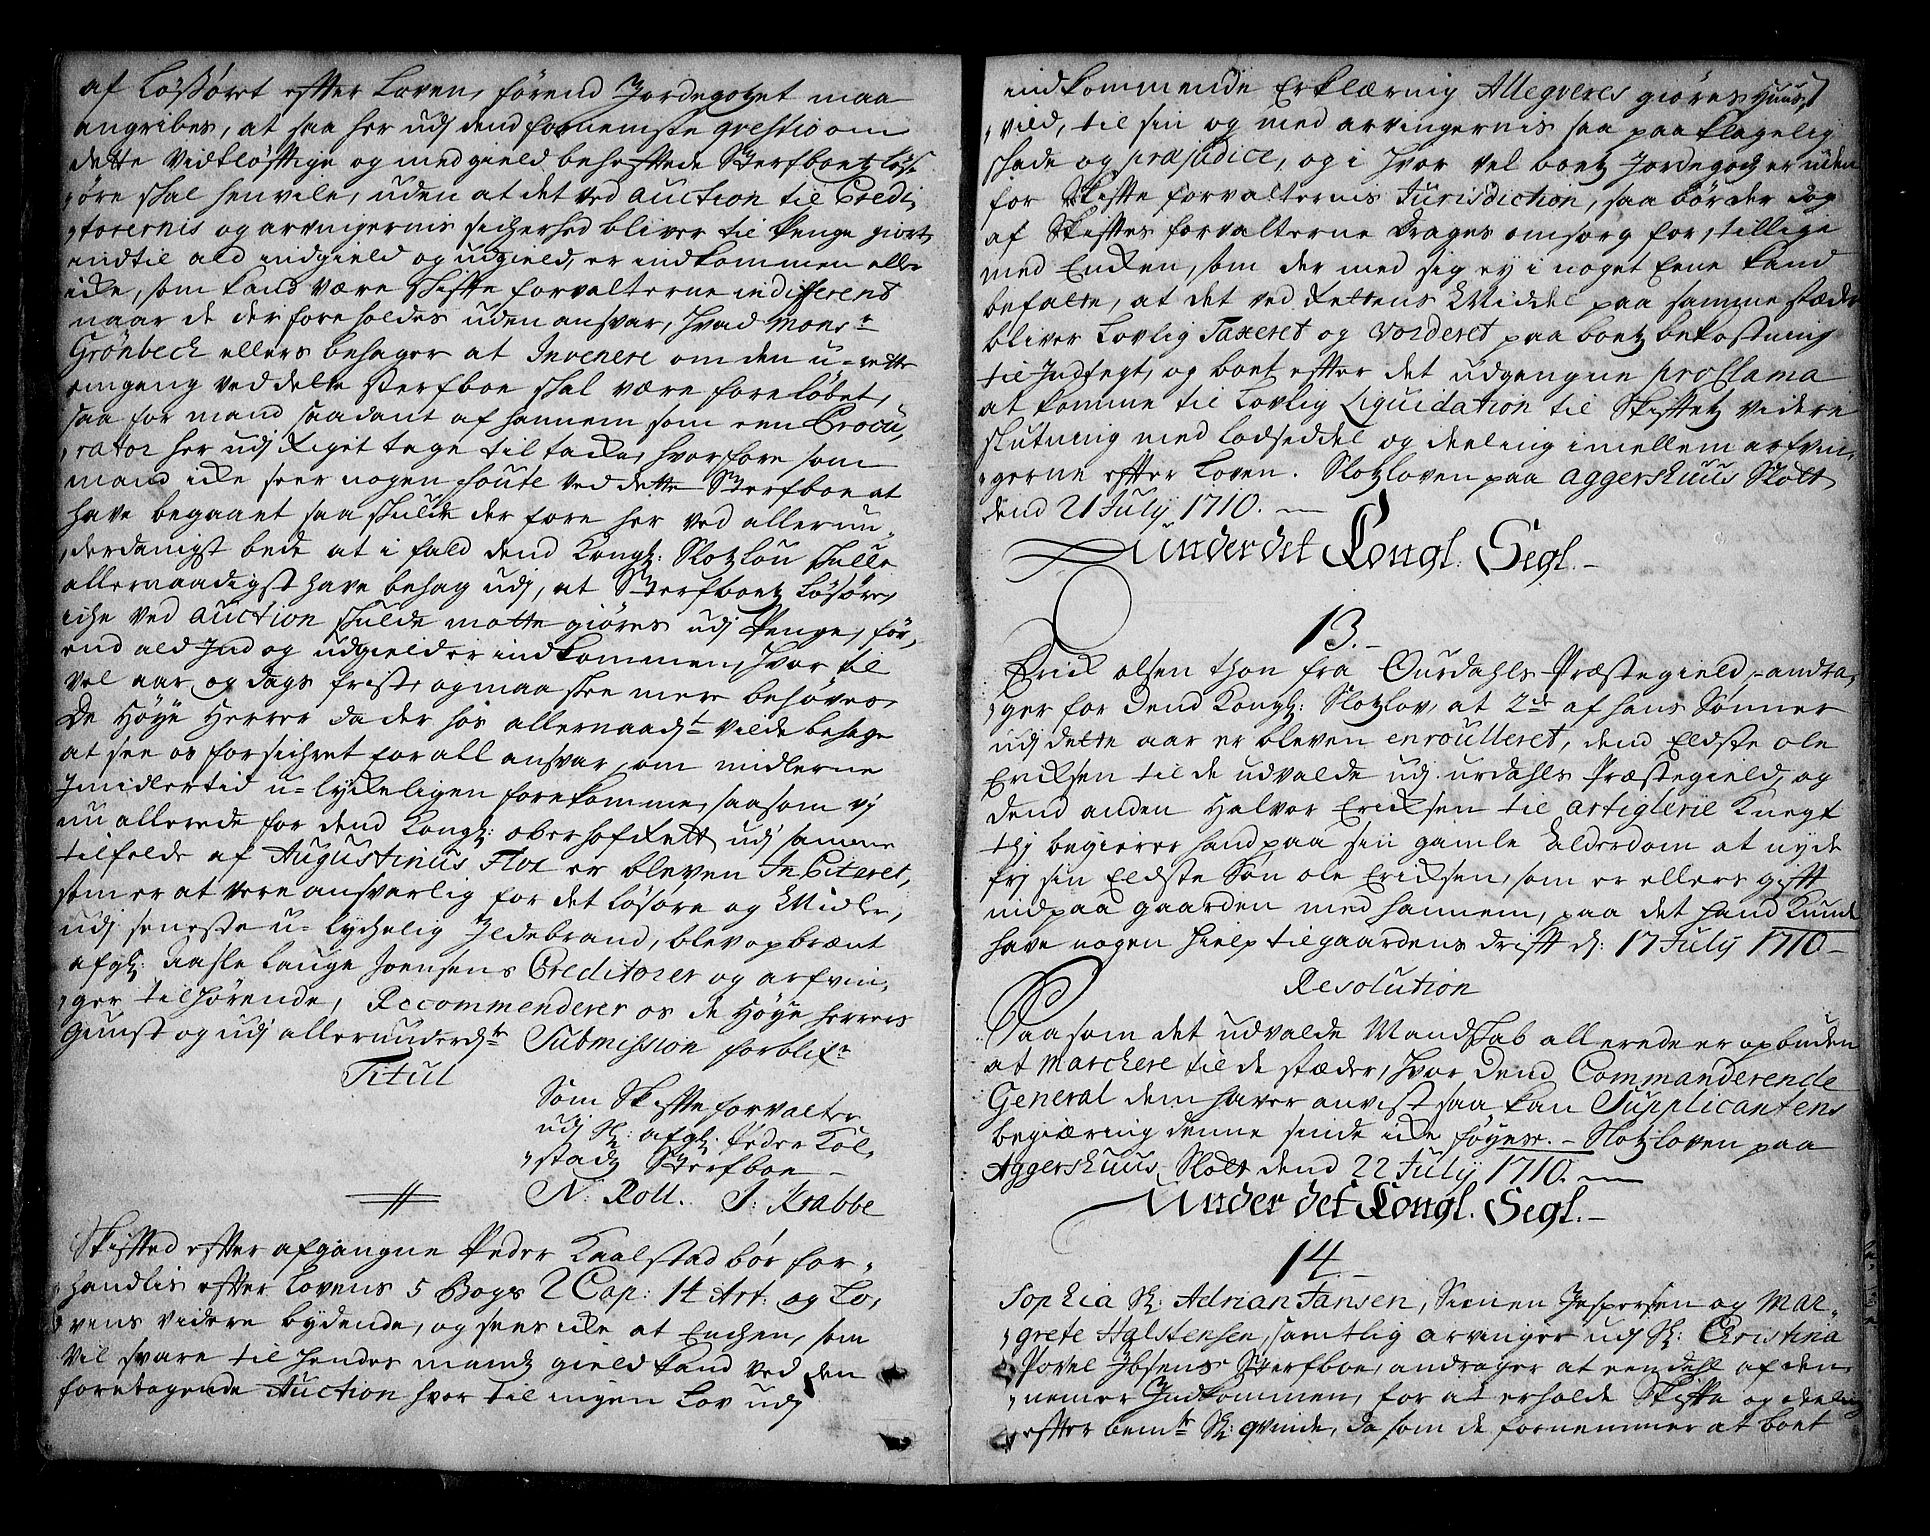 af Løßøret efter Loven, førend Jordegotzet maa
angribes, at saa her udj dend fornemste qvestio om
dette vidtløftige og med gield behefftede Sterfboetz løs„
„øre skal henvile, uden at det ved Auction til Credi„
„torernis og arvingernis sicherhed bliver til Penge giort
indtil ald indgield og udgield, er indkommen eller
icke, som kand være skifte forvalterne indifferend
naar de der foreholdes uden ansvar, hvad Monsr
Grönbeck ellers behager at Invenere om den u-rette
omgang ved dette sterfboe skal være foreløbet,
saa for mand saadant af hannem som een Procu„
„rator her udj Riget tage til tacke, hvorfore som
mand icke seer nogen foute ved dette Sterfboe at
have begaaet saa skulde der fore her ved allerun„
„derdanigst bede at i fald dend Kongl: Slotzlou skulle
allernaadigst have behag udj, at Sterfboetz Løsøre,
iche ved Auction skulde motte giøres udj Penge, før„
end ald Ind og udgield er indkommen, hvor til
vel aar og dags frist, og maa skee mere behøves
De Høye Herrer da der hos allernaadst vilde behage
at see os forsichret for all ansvar, om midlerne
Imidlertid u-lyckeligen forekomme, saasom vj
nu allerede for dend Kongl: oberhofRett udj samme
tilfelde af Augustinus Flor er bleven In Citeret,
som er at vere ansvarlig for det løsøre og Midler,
udj seneste u-lychelig Ildebrand, blev opbrænt
afgl: Lauge Joensens Creditorer og arfvin„
„ger tilhørende, Recommenderer os de Høye herrers
Gunst og udj allerunderdste Submission forblifr
Titul
Som Skifte forvalter
udj Sl: afgl: Peder Kol„
„stadz Sterfboe
N: Roll. J: Krabbe
Skifted efter afgangne Peder Kaalstad bør for„
„handlis efter Lovens 5 Bogs 2 Cap: 14 Art: og Lo„
„vens videre bydende, og sees icke at Enchen, som
vil svare til hendes mandz gield kand ved den
foretagende Auction hvor til ingen Lov udj
indkommende Erklæring Allegveres giøres Huus„
„vild, til sin og med arvingernis saa paa klagelig
skade og præjudice, og i hvor vel boetz Jordegodz er uden
for Skifte forvalternis Jurisdiction, saa bør der dog
af Skiftes forvalterne drages omsorg for, tillige
med Encken, som der med sig ey i noget Eene kand
befatte, at det ved Rettens Middel paa samme stæder
bliver Lovlig Taxeret og vorderet paa boetz bekostning
til Indtegt, og boet efter det udgangne proclama
at komme til Lovlig Liquidation til Skiftetz videre
slutning med Lodseddel og deeling imellem arfvin„
„gerne efter Loven. Slotzloven paa Aggershuus Slott
dend 21 July 1710.
Under det Kongl. Segl.
13.
Erick olsen thon fra Ourdahls Præstegield, andra„
„ger for dend Kongl: Slotzlov, at 2de af hans Sønner
udj dette aar er bleven enroulleret, dend Eldste ole
Ericksen til de udvalde udj urdahls Præstegield, og
dend anden Halvor Ericksen til artiglerie Knegt
thj begierer hand paa sin gamle Alderdom at nyde
frj sin Eldste Søn ole Ericksen, som er ellers gifft
ind paa gaarden med hannem, paa det hand kunde
have nogen hielp til gaardens drifft d: 17 July 1710
Resolution
Saasom det udvalde Mandskab allerede er opbuden
at Marchere til de stæder, hvor dend Commanderende
General dem haver anvist saa kan Supplicantens
begiæring denne sinde icke føyes. - Slotzloven paa
Aggershuus Slott dend 22 July 1710.
Under det Kongl. Segl.
14.
Sophia Sl: Adrian Jansen, Simen Jespersen og Mar„
„grete Halstensen, samtlig arvinger udj Sl: Christina
Povel Ibsens Sterfboe, andrager at een dehl af den„
„nem er Indkommen, for at erholde Skifte og deeling
efter bemte Sl: qvinde, da som de fornemmer at boet